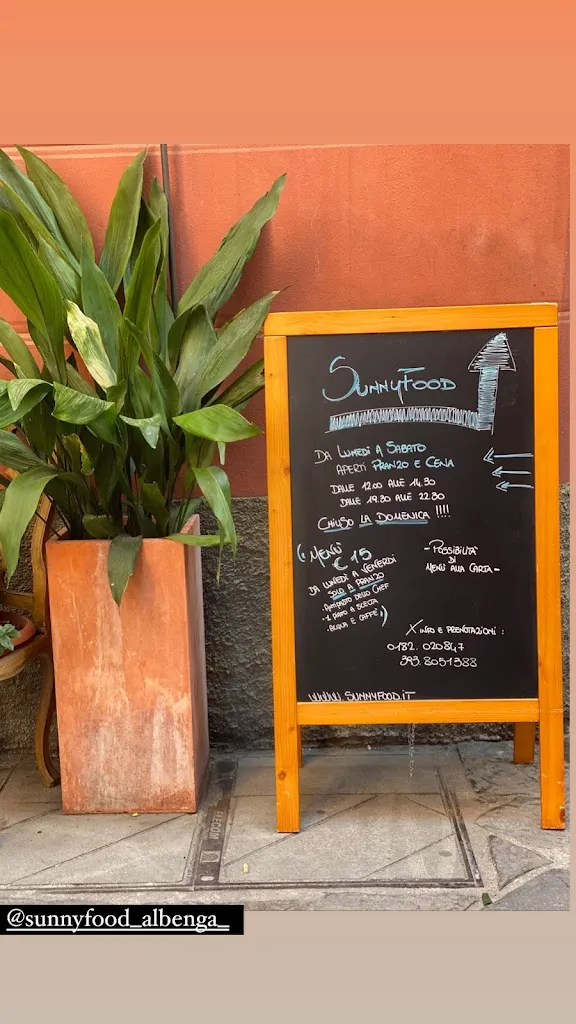 SUNNYFOOD
DA LUNEDÌ A SABATO
APERTI PRANZO E CENA
DALLE 12.00 ALLE 14.30
DALLE 19.30 ALLE 22.30
CHIUSO LA DOMENICA !!!!
(MENÙ
€ 15
DA LUNEDÌ A VENERDÌ
SOLO A PRANZO
- ANTIPASTO DELLO CHEF
- 1 PIATO A SCELTA
- ACQUA E CAFFÈ)
- POSSIBILITA'
DI
MENÙ ALLA CARTA -
X INFO E PRENOTAZIONI :
0182. 020847
393.8051388
WWW.SUNNYFOOD.IT
@sunnyfood_albenga_